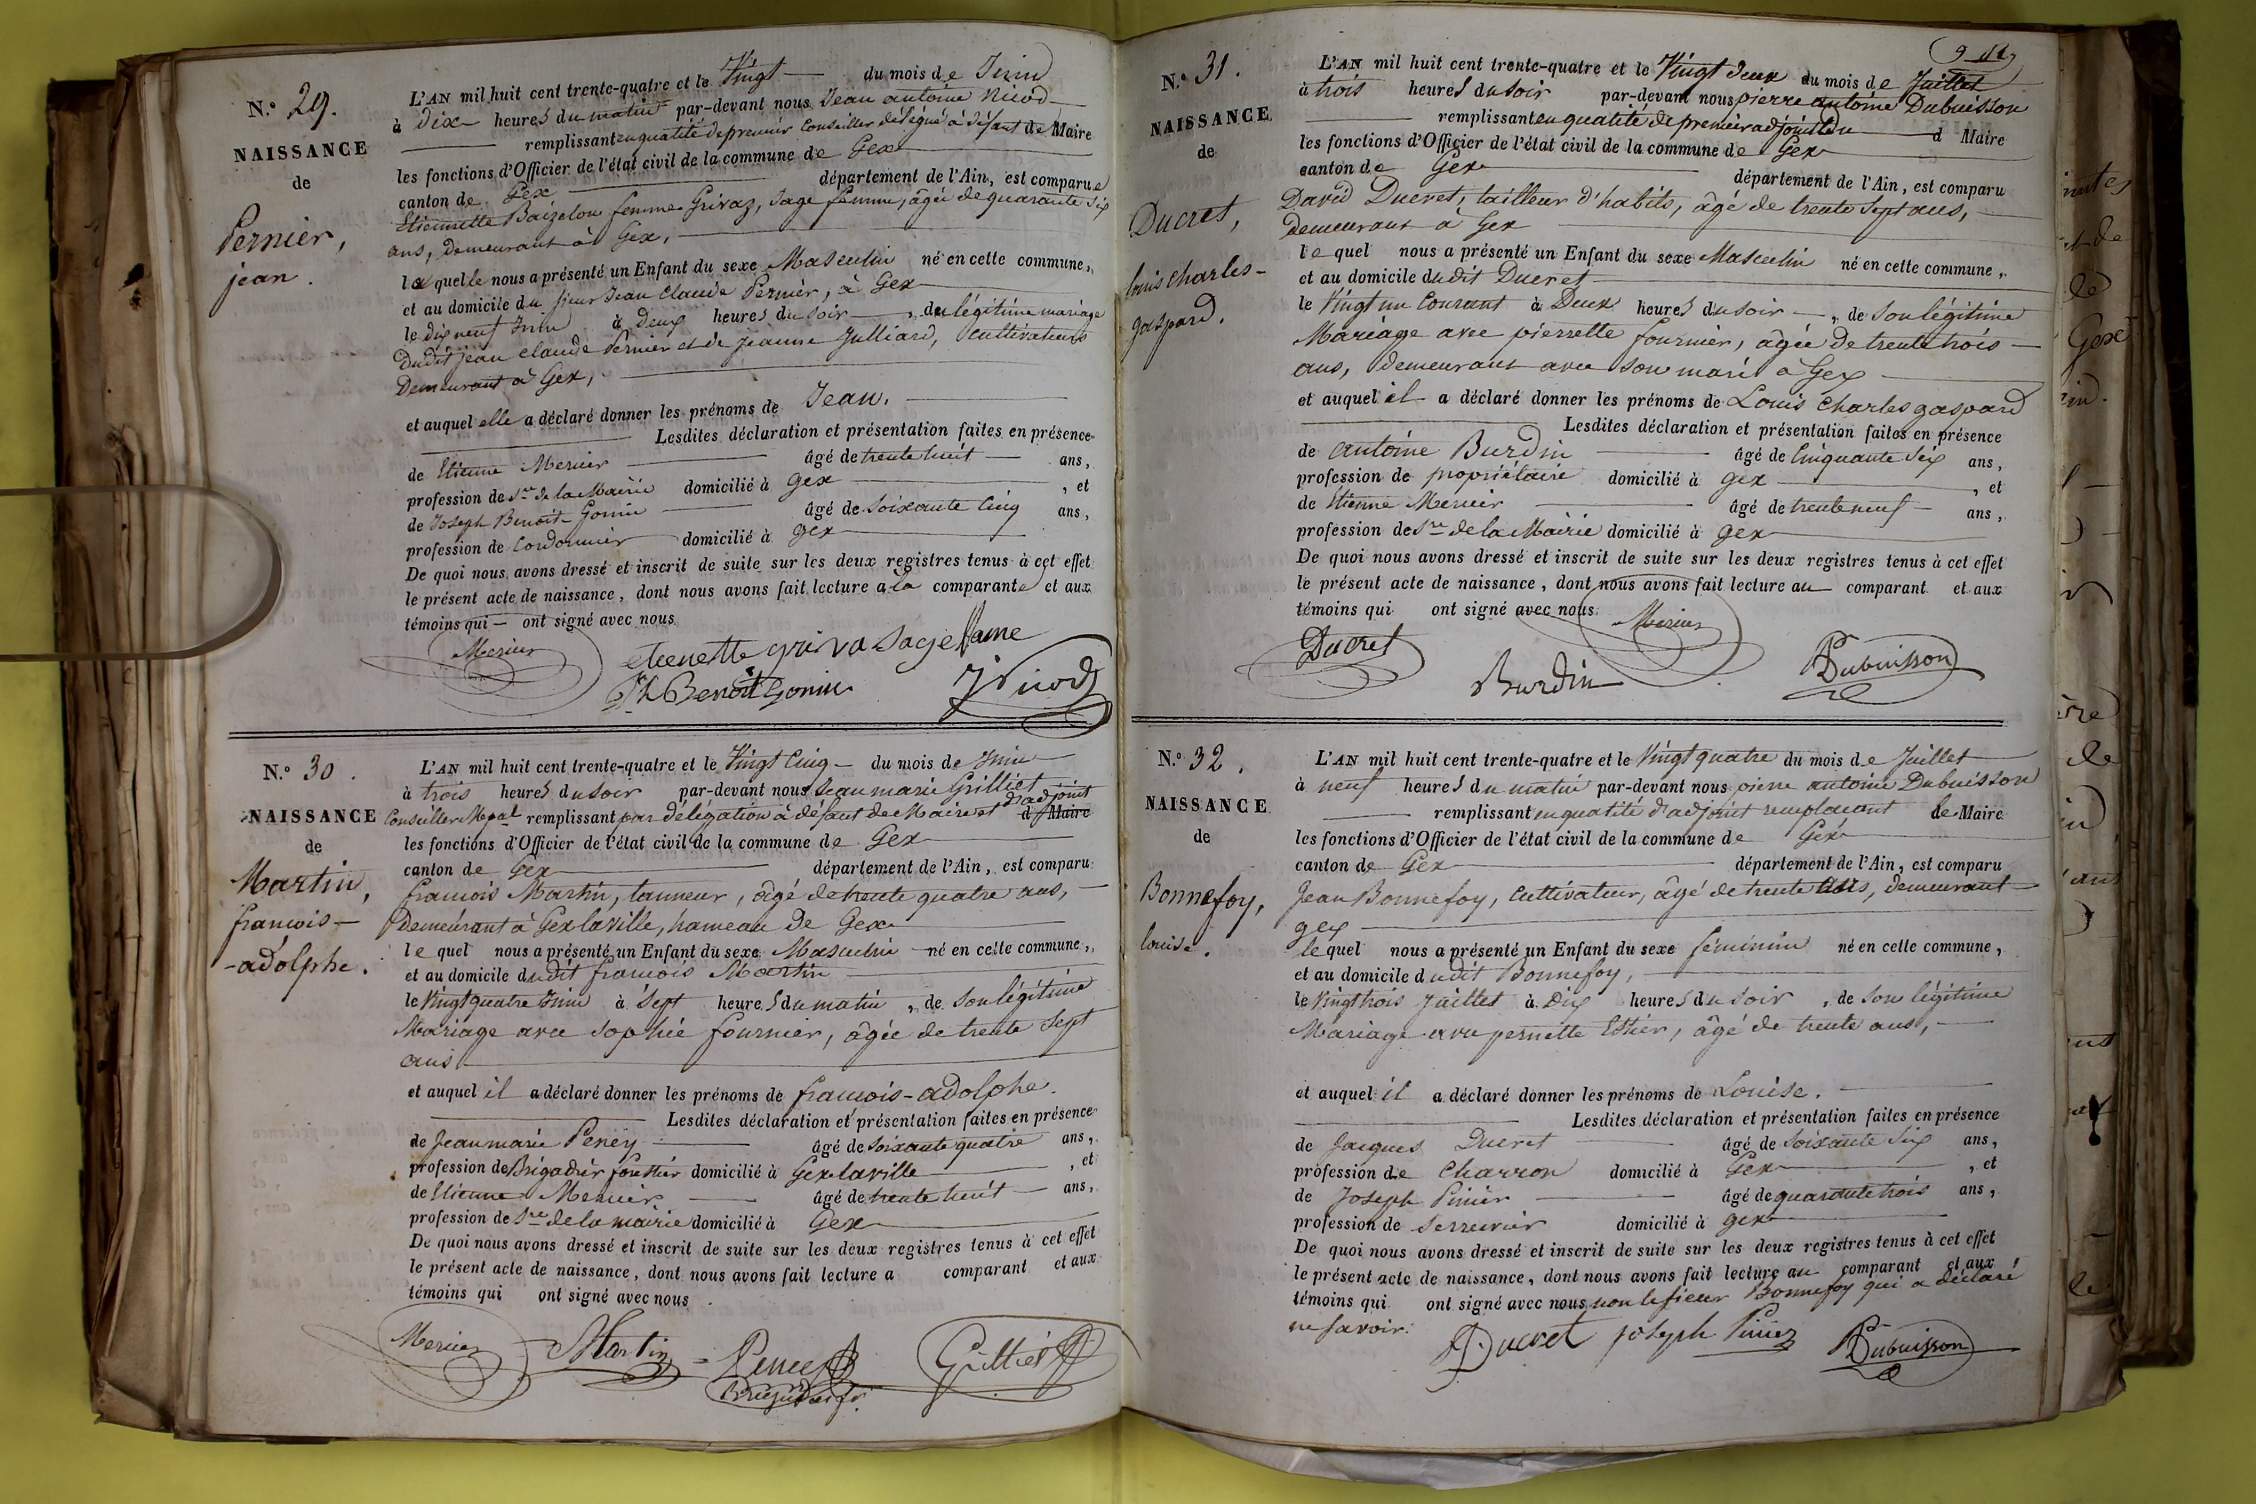 N.º 29.
NAISSANCE
de
Pernier,
jean.
L'AN mil huit cent trente-quatre et le Vingt du mois de Juin
à dix heures du matin par-devant nous Jean antoine Nicod
remplissant en qualité de premier Conseiller délégué à défaut de Maire
les fonctions d'Officier de l'état civil de la commune de Gex
canton de Gex département de l'Ain, est comparue
Etiennette Baizelon femme Grivaz, Sage femme, âgée de quarante Six
ans, demeurant à Gex,
laquelle nous a présenté un Enfant du sexe Masculin né en cette commune,
et au domicile du sieur Jean Claude Pernier, à Gex
le dix neuf Juin à deux heures du soir, du légitime mariage
dudit jean claude Pernier et de jeanne Julliard, cultivateurs
Demeurant à Gex,
et auquel elle a déclaré donner les prénoms de Jean.
Lesdites déclaration et présentation faites en présence
de Etienne Mernier âgé de trente huit ans,
profession de Sre de la Mairie domicilié à gex, et
de Joseph Benoit Gonin âgé de Soixante Cinq ans,
profession de Cordonnier domicilié à gex
De quoi nous avons dressé et inscrit de suite sur les deux registres tenus à cet effet
le présent acte de naissance, dont nous avons fait lecture a la comparante et aux
témoins qui ont signé avec nous
Mernier etienette griva Sage fame
Jh Benoit Gonin JNicod
N.º 30.
NAISSANCE
de
Martin,
francois-
-adolphe.
L'AN mil huit cent trente-quatre et le Vingt Cinq du mois de Juin
à trois heures du soir par-devant nous Jean marie Grilliet
Conseiller Mupal remplissant par délégation à défaut de Maire et d'adjoint d Maire
les fonctions d'Officier de l'état civil de la commune de Gex
canton de Gex département de l'Ain, est comparu
francois Martin, tanneur, âgé de trente quatre ans,
Demeurant à Gex la Ville, hameau de Gex
le quel nous a présenté un Enfant du sexe Masculin né en cette commune,
et au domicile dudit francois Martin
le Vingt quatre Juin à Sept heures du matin, de Son légitime
Mariage avec Sophie fournier, âgée de trente Sept
ans
et auquel il a déclaré donner les prénoms de francois-adolphe.
Lesdites déclaration et présentation faites en présence
de Jean marie Peney âgé de Soixante quatre ans,
profession de Brigadier forestier domicilié à Gex la ville, et
de Etienne Mernier âgé de trente huit ans,
profession de Sre de la mairie domicilié à Gex
De quoi nous avons dressé et inscrit de suite sur les deux registres tenus à cet effet
le présent acte de naissance, dont nous avons fait lecture a comparant et aux
témoins qui ont signé avec nous
Mernier Martin Peney Grilliet
N.º 31.
NAISSANCE
de
Ducret,
louis charles-
gaspard.
L'AN mil huit cent trente-quatre et le Vingt deux du mois de Juillet
à trois heures du soir par-devant nous pierre antoine Dubuisson
remplissant en qualité de premier adjoint du d Maire
les fonctions d'Officier de l'état civil de la commune de Gex
canton de Gex département de l'Ain, est comparu
David Ducret, tailleur d'habits, âgé de trente sept ans,
demeurant à Gex
le quel nous a présenté un Enfant du sexe Masculin né en cette commune,
et au domicile dudit Ducret
le Vingt un Courant à Deux heures du soir, de Son légitime
Mariage avec pierrette fournier, âgée de trente trois
ans, demeurant avec son mari à Gex
et auquel il a déclaré donner les prénoms de Louis Charles gaspard
Lesdites déclaration et présentation faites en présence
de antoine Burdin âgé de Cinquante Six ans,
profession de propriétaire domicilié à gex, et
de Etienne Mernier âgé de trente neuf ans,
profession de Sre de la Mairie domicilié à gex
De quoi nous avons dressé et inscrit de suite sur les deux registres tenus à cet effet
le présent acte de naissance, dont nous avons fait lecture au comparant et aux
témoins qui ont signé avec nous.
Mernier
Ducret Burdin Dubuisson
N.º 32.
NAISSANCE
de
Bonnefoy,
louise.
L'AN mil huit cent trente-quatre et le Vingt quatre du mois de Juillet
à neuf heures du matin par-devant nous pierre antoine Dubuisson
remplissant en qualité d'adjoint remplacant le Maire
les fonctions d'Officier de l'état civil de la commune de Gex
canton de Gex département de l'Ain, est comparu
Jean Bonnefoy, Cultivateur, âgé de trente trois, demeurant
gex
le quel nous a présenté un Enfant du sexe féminin né en cette commune,
et au domicile dudit Bonnefoy,
le Vingt trois Juillet à Dix heures du soir, de Son légitime
Mariage avec pernette Estier, âgé de trente ans,
et auquel il a déclaré donner les prénoms de Louise.
Lesdites déclaration et présentation faites en présence
de Jacques Ducret âgé de Soixante Six ans,
profession de Charron domicilié à Gex, et
de Joseph Pinier âgé de quarante trois ans,
profession de Serrurier domicilié à gex
De quoi nous avons dressé et inscrit de suite sur les deux registres tenus à cet effet
le présent acte de naissance, dont nous avons fait lecture au comparant et aux
témoins qui ont signé avec nous non le sieur Bonnefoy qui a déclaré
ne savoir.
J. Ducret joseph Pinier Dubuisson